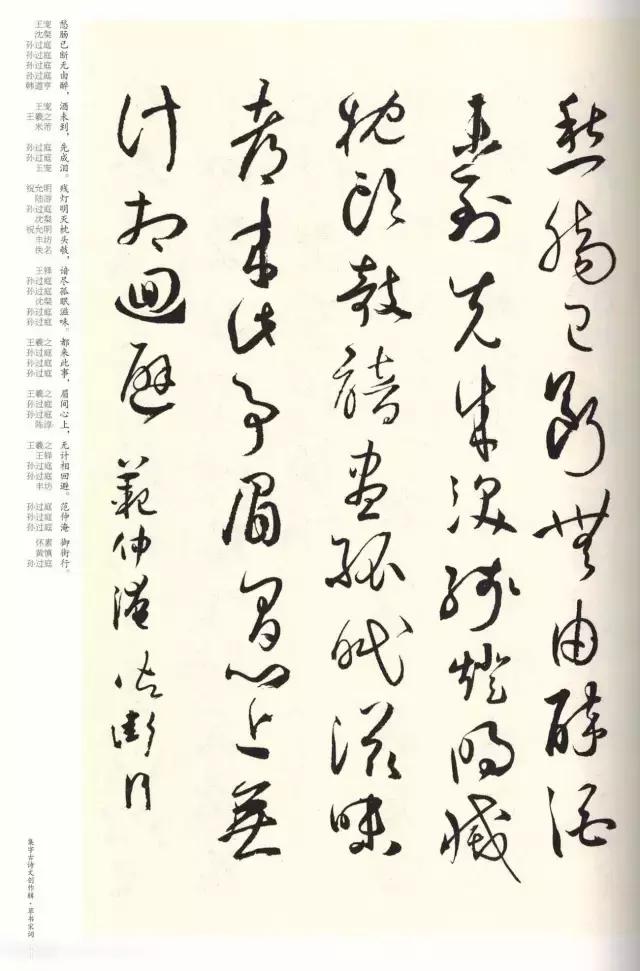 愁腸已斷無由醉酒
未到先成淚殘燈明滅
枕頭欹諳盡孤眠滋味
都來此事眉間心上無
計相迴避 範仲淹 御街行
王宠 愁
沈粲 肠
孙过庭 已
孙过庭 断
孙过庭 无
孙过庭 由
韩道亨 醉，
王宠 酒
王羲之 未
米芾 到，
孙过庭 先
孙过庭 成
王宠 泪。
祝允明 残
陆游 灯
孙过庭 明
沈粲 灭
祝允明 枕
丰坊 头
佚名 敧，
王铎 谙
孙过庭 尽
孙过庭 孤
沈粲 眠
孙过庭 滋
孙过庭 味。
王羲之 都
孙过庭 来
孙过庭 此
孙过庭 事，
王羲之 眉
孙过庭 间
孙过庭 心
陈淳 上，
王羲之 无
王铎 计
孙过庭 相
孙过庭 回
丰坊 避。
孙过庭 范
孙过庭 仲
孙过庭 淹
怀素 御
黄慎 街
孙过庭 行。
集字古诗文创作辑·草书宋词